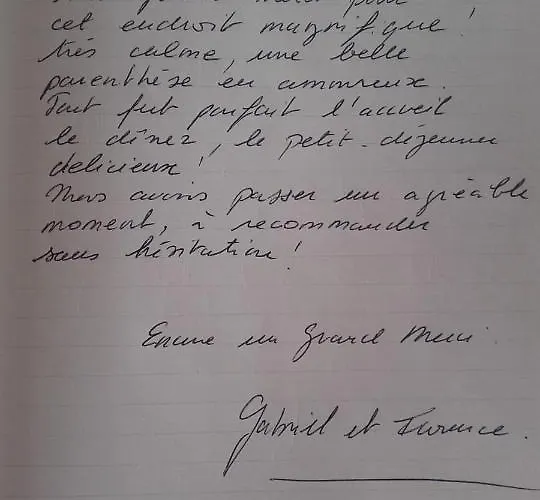 cet endroit magnifique !
très calme, une belle
parenthèse en amoureux.
Tout fut parfait l'accueil
le dînez, le petit-déjeuner
delicieux !
Nous avons passer un agréable
moment, à recommander
sans hésitation !
Encore un grand Merci.
Gabriel et Florence.